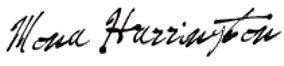 Mona Harrington